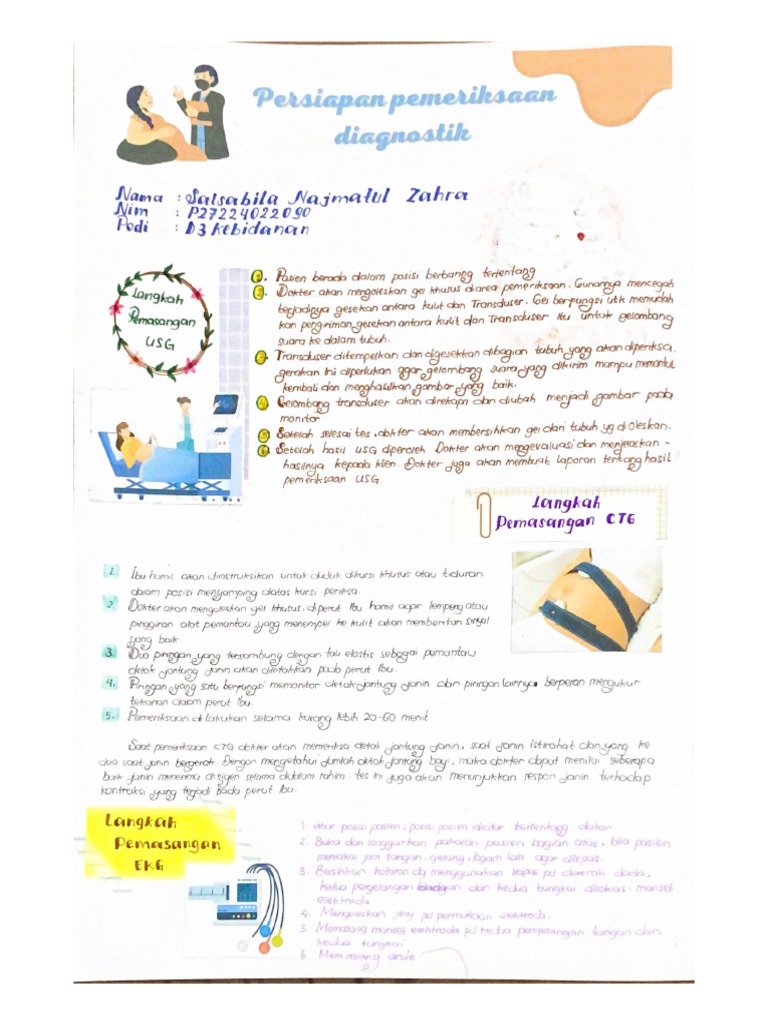 Persiapan pemeriksaan
diagnostik
Nama : Salsabila Najmatul Zahra
Nim : P27224022090
Podi : D3 Kebidanan
Langkah
Pemasangan
USG
1. Pasien berada dalam posisi berbaring terlentang
2. Dokter akan mengoleskan gel khusus diarea pemeriksaan. Gunannya mencegah
terjadinya gesekan antara kulit dan Transduser. Gel berfungsi utk memudah
kan pengiriman gesekan antara kulit dan Transduser itu untuk gelombang
suara ke dalam tubuh.
3. Transduser ditempelkan dan digesekkan dibagian tubuh yang akan diperiksa.
gerakan Ini diperlukan agar gelombang suara yang dikirim mampu memantul
kembali dan menghasilkan gambar yang baik.
4. Gelombang transduser akan direkam dan diubah menjadi gambar pada
monitor
5. Setelah selesai tes, dokter akan membersihkan gel dan tubuh yg dioleskan.
6. Setelah hasil USG diperoleh Dokter akan mengevaluasi dan menjelaskan -
hasilnya kepada klien. Dokter juga akan membuat laporan tentang hasil
pemeriksaan USG.
Langkah
Pemasangan CTG
1. Ibu hamil akan diinstruksikan untuk duduk dikursi khusus atau tiduran
dalam posisi menyamping diatas kursi periksa.
2. Dokter akan mengoleskan gel khusus diperut Ibu hamil agar lempeng atau
pinggiran alat pemantau yang menempel ke kulit akan memberikan sinyal
yang baik.
3. Dua piringan yang tersambung dengan tali elastis sebagai pemantau
detak jantung janin akan diletakkan pada perut Ibu.
4. Piringan yang satu berfungsi memonitor detak jantung janin dan piringan lainnya berperan mengukur
tekanan dalam perut Ibu.
5. Pemeriksaan di lakukan selama kurang lebih 20-60 menit
Saat pemeriksaan CTG dokter akan memeriksa detak jantung janin, saat janin istirahat dan yang ke
dua saat janin bergerak. Dengan mengetahui jumlah detak jantung bayi, maka dokter dapat menilai seberapa
baik janin menerima oksigen selama didalam rahim. tes ini juga akan menunjukkan respon janin terhadap
kontraksi yang terjadi pada perut Ibu.
Langkah
Pemasangan
EKG
1. atur posisi pasien, posisi pasien diatur terlentang datar
2. Buka dan longgarkan pakaian pasien bagian atas, bila pasien
memakai jam tangan, gelang, logam lain agar dilepas.
3. Bersihkan kotoran dg menggunakan kapas pd daerah dada,
kedua pergelangan dan kedua tungkai dilokasi manset
elektroda
4. Mengoleskan jelly pd permukaan elektroda.
5. Memasang manset elektroda pd kedua pergelangan tangan dan
kedua tungkai
6. Memasang